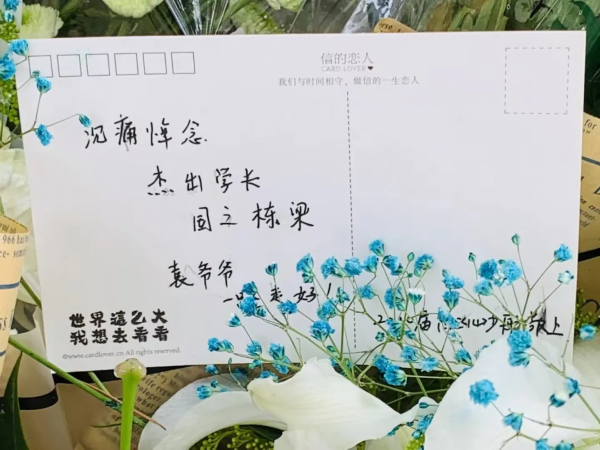 信的恋人
CARD LOVER
我们与时间相守，做信的一生恋人
沉痛悼念
杰出学长
国之栋梁
袁爷爷
一路走好！
敬上
世界這么大
我想去看看
©www.cardlover.cn All rights reserved.